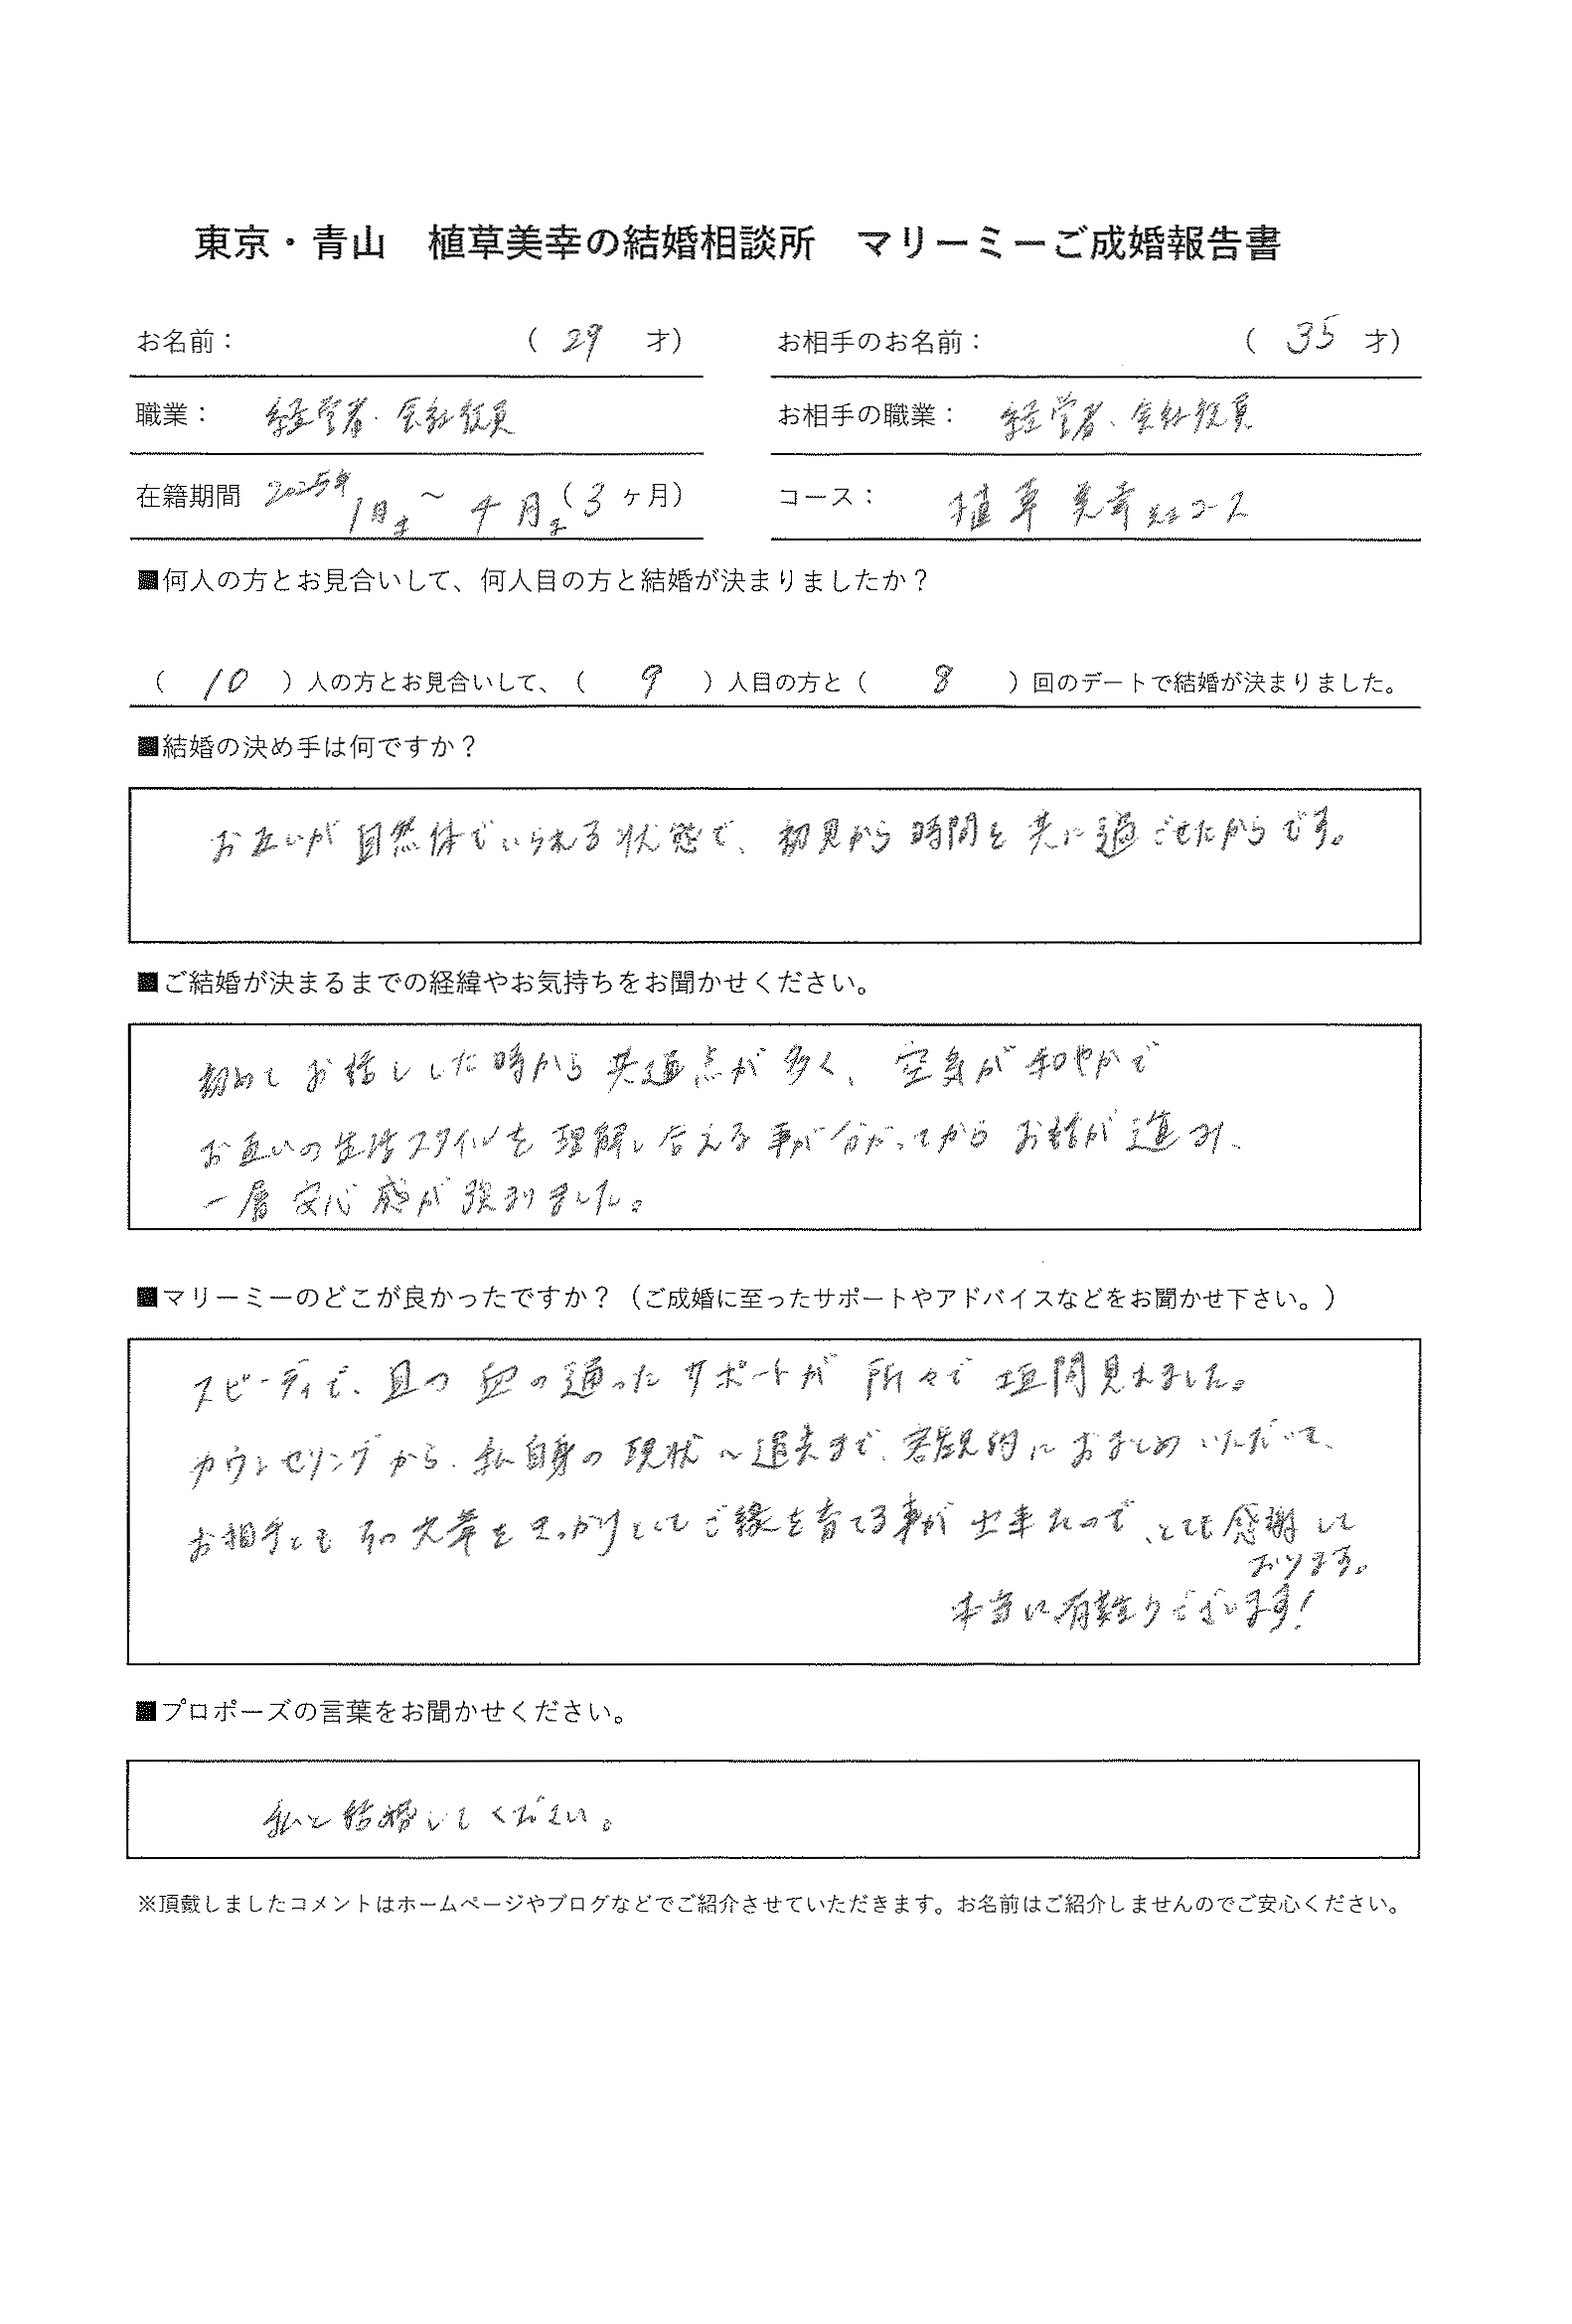 東京・青山　植草美幸の結婚相談所　マリーミーご成婚報告書
お名前：　（ 29 才）　お相手のお名前：　（ 35 才）
職業：　経営者・会社役員　お相手の職業：　経営者・会社役員
在籍期間　2025年1月末～4月末（3ヶ月）　コース：　植草美幸コース
■何人の方とお見合いして、何人目の方と結婚が決まりましたか？
（ 10 ）人の方とお見合いして、（ 9 ）人目の方と（ 8 ）回のデートで結婚が決まりました。
■結婚の決め手は何ですか？
お互いが自然体でいられる状態で、初見から時間を共に過ごせたからです。
■ご結婚が決まるまでの経緯やお気持ちをお聞かせください。
初めてお話しした時から共通点が多く、空気が和やかで
お互いの生活スタイルを理解し合える事が分かってからお話が進み、
一層安心感が強まりました。
■マリーミーのどこが良かったですか？（ご成婚に至ったサポートやアドバイスなどをお聞かせ下さい。）
スピーディで、且つ血の通ったサポートが所々で垣間見れました。
カウンセリングから、私自身の現状～過去まで、客観的におまとめいただいて、
お相手ともその文章をきっかけとしてご縁を育てる事が出来たので、とても感謝して
おります。
本当に有難うございます！
■プロポーズの言葉をお聞かせください。
私と結婚してください。
※頂戴しましたコメントはホームページやブログなどでご紹介させていただきます。お名前はご紹介しませんのでご安心ください。